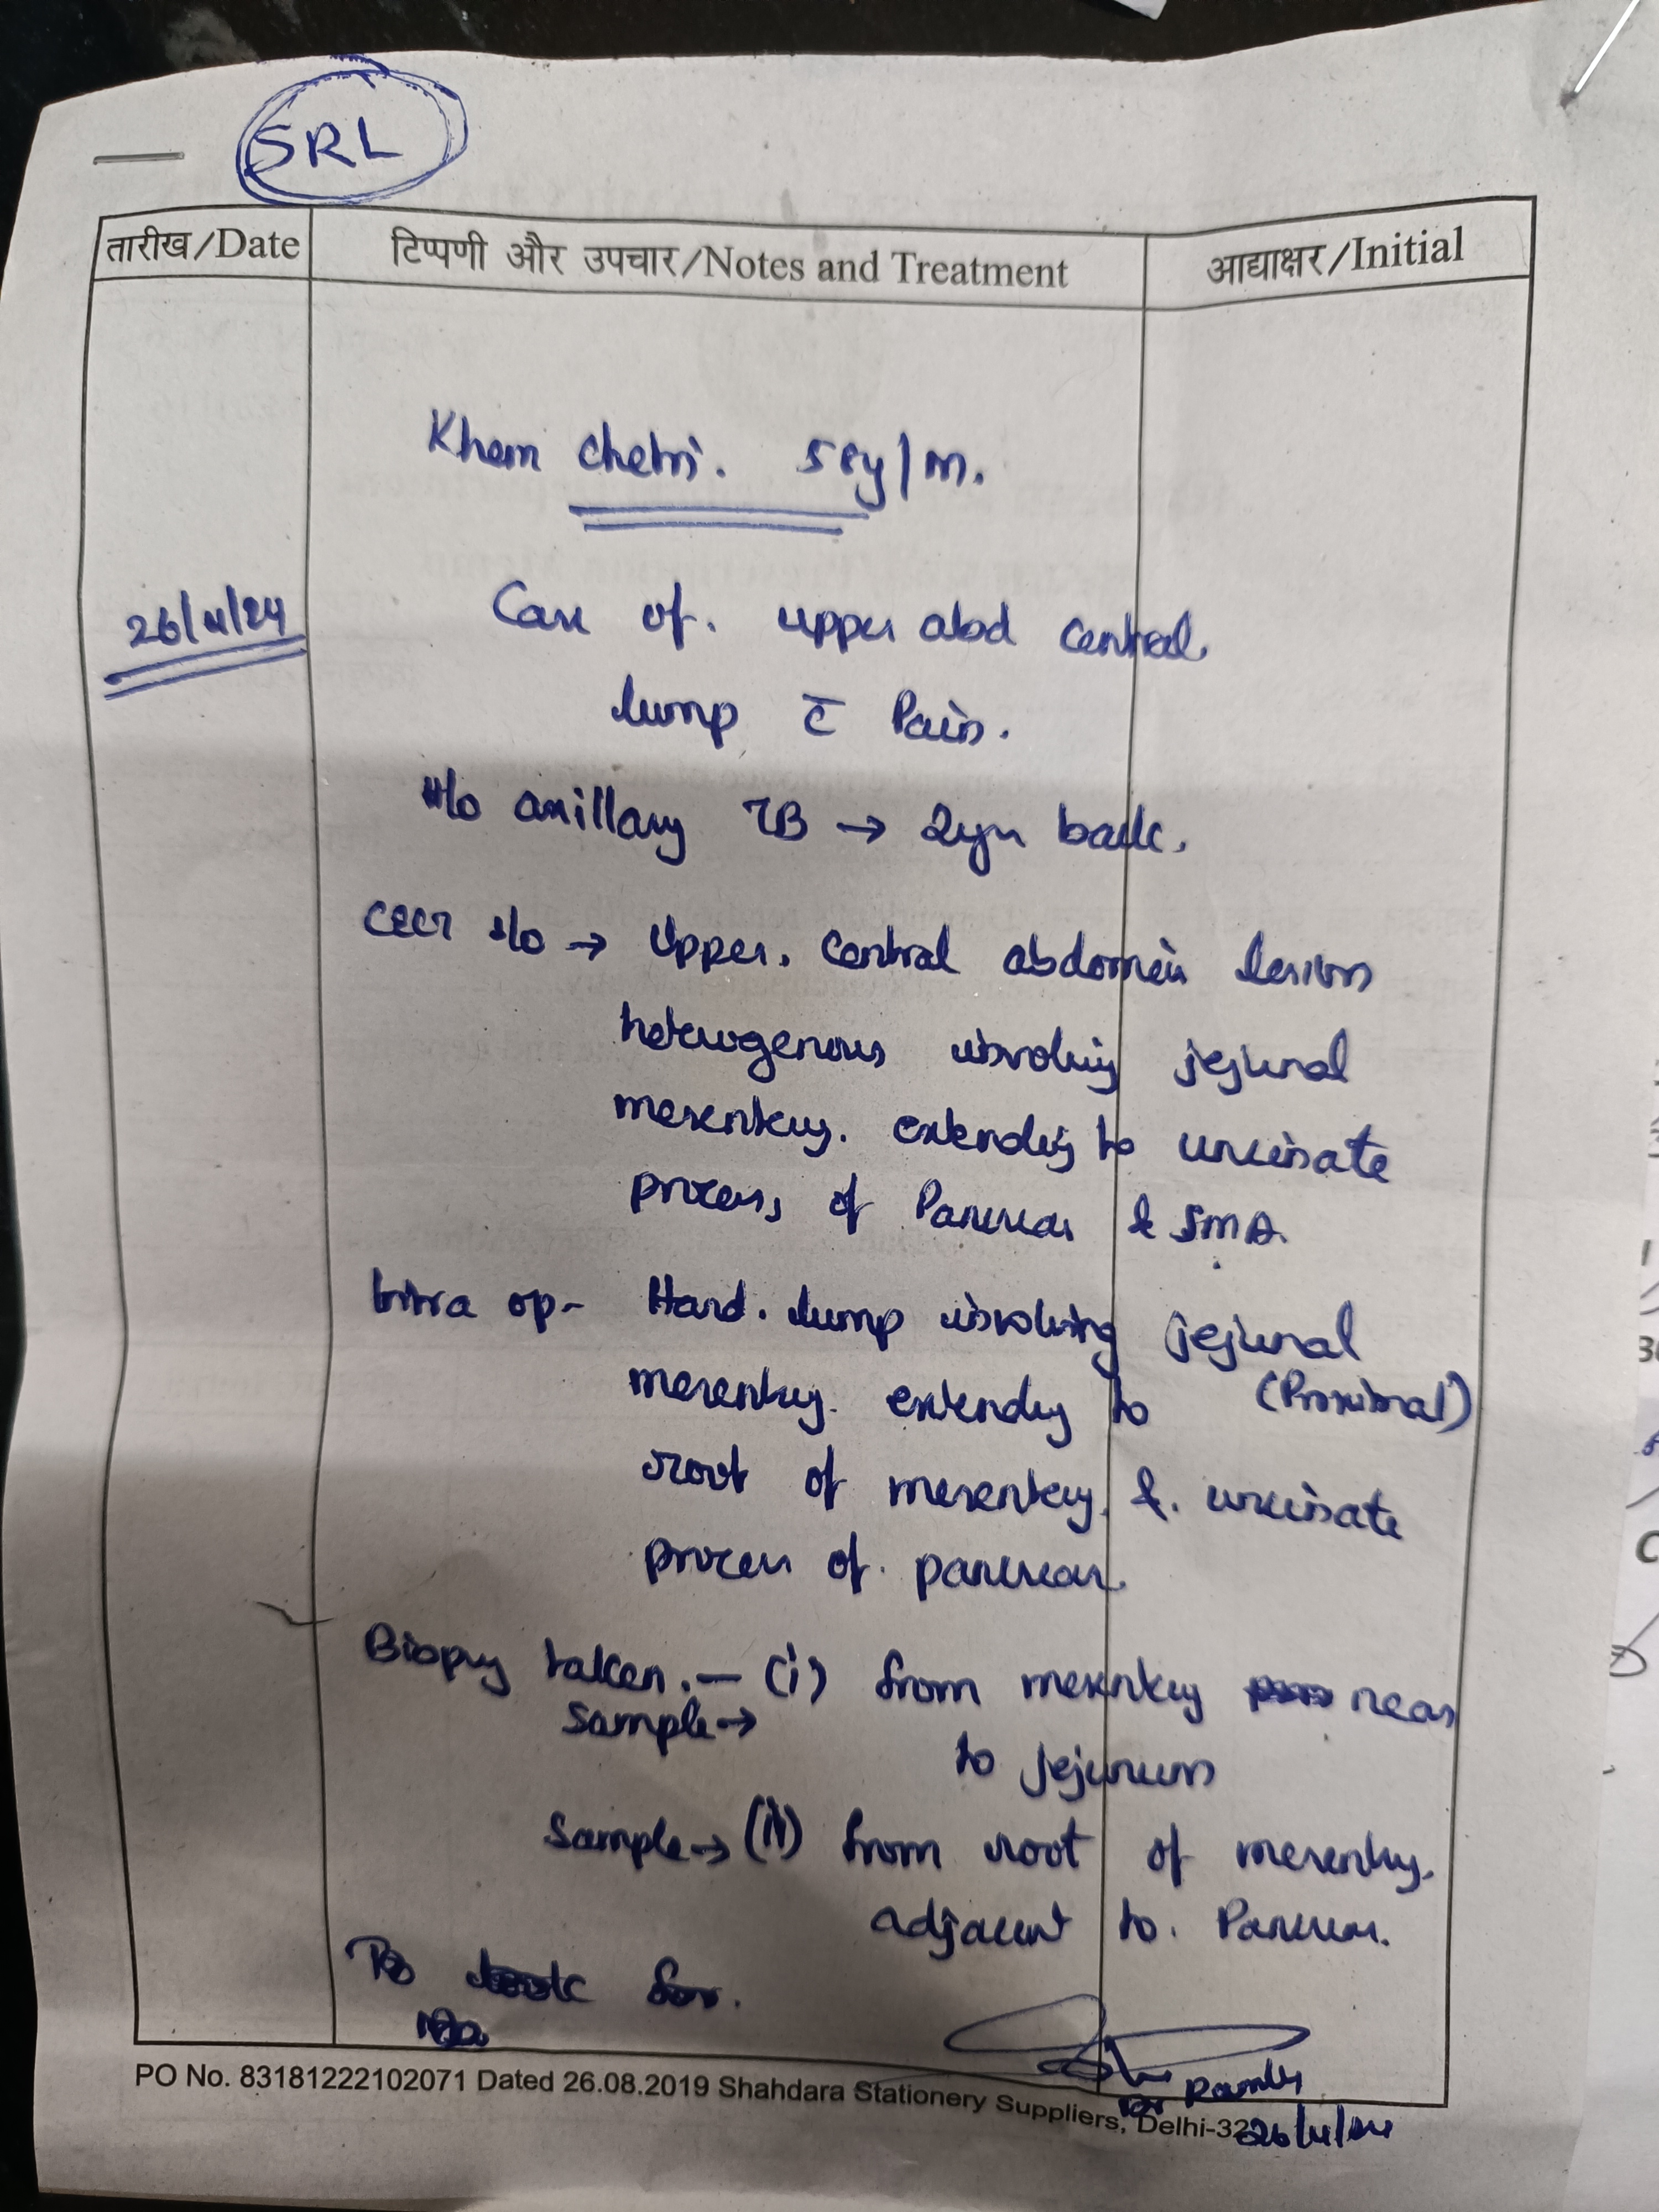 SRL
तारीख/Date टिप्पणी और उपचार/Notes and Treatment आद्याक्षर/Initial
Khem Chetri. 58y/m.
26/11/24 Case of. upper abd central
lump c̄ Pain.
H/o axillary TB → 2yr back.
CECT s/o → Upper. Central abdomen lesion
heterogenous involving jejunal
mesentery. extending to uncinate
process of Pancreas & SMA.
Intra op- Hard. lump involving jejunal
mesentery. extending to (Proximal)
root of mesentery. &. uncinate
process of. pancreas.
Biopsy taken. — (i) from mesentery near
Sample→ to jejunum
Sample→ (ii) from root of mesentery.
adjacent to. Pancreas.
for.
Dr
26/11/24
PO No. 83181222102071 Dated 26.08.2019 Shahdara Stationery Suppliers, Delhi-32